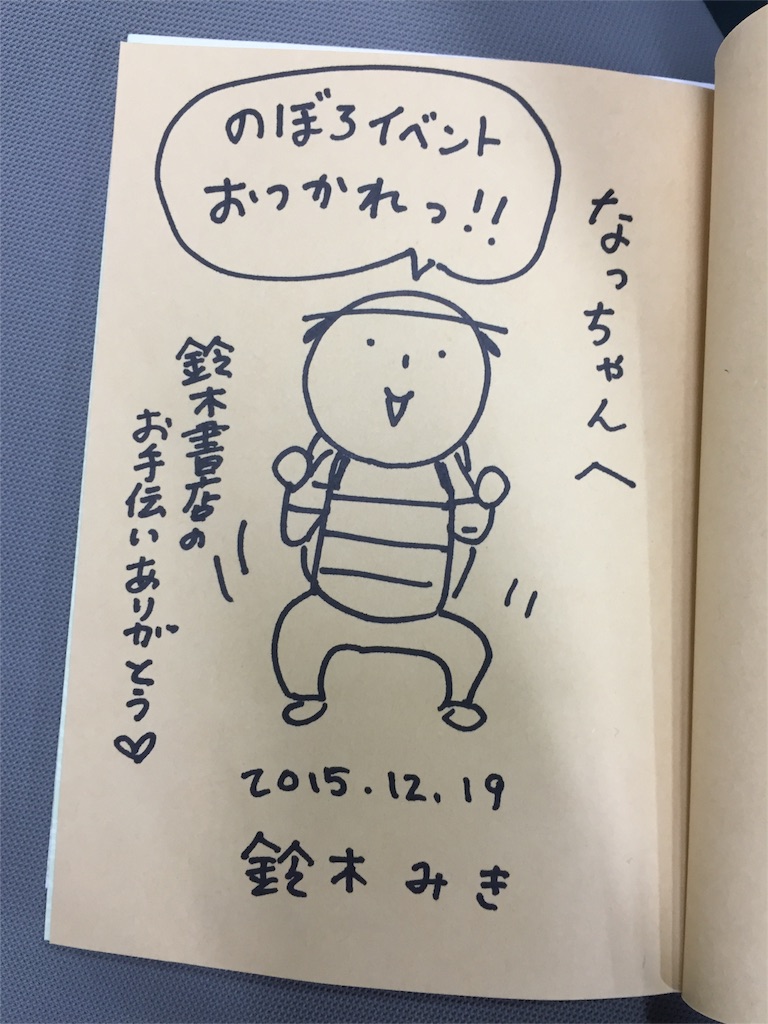 のぼろイベント
おつかれっ!!
なっちゃんへ
鈴木書店の
お手伝いありがとう♡
2015.12.19
鈴木みき